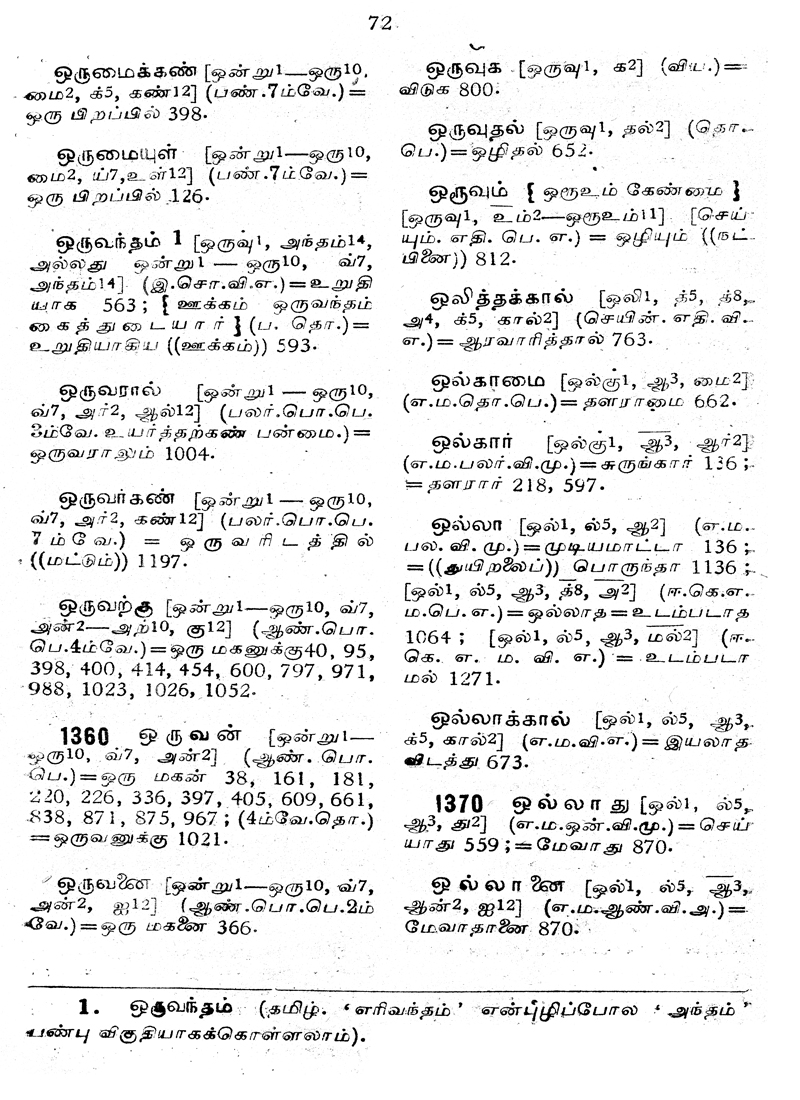 72
ஒருமைக்கண் [ஒன்று1—ஒரு10,
மை2, க்5, கண்12] (பண்.7ம்வே.)=
ஒரு பிறப்பில் 398.
ஒருமையுள் [ஒன்று1—ஒரு10,
மை2, ய்7,உள்12] (பண்.7ம்வே.)=
ஒரு பிறப்பில் 126.
ஒருவந்தம் 1 [ஒருவு1, அந்தம்14,
அல்லது ஒன்று1 — ஒரு10, வ்7,
அந்தம்14] (இ.சொ.வி.எ.)=உறுதி
யாக 563; { ஊக்கம் ஒருவந்தம்
கைத்துடையார் } (ப. தொ.)=
உறுதியாகிய ((ஊக்கம்)) 593.
ஒருவரால் [ஒன்று1 — ஒரு10,
வ்7, அர்2, ஆல்12] (பலர்.பொ.பெ.
3ம்வே. உயர்த்தற்கண் பன்மை.)=
ஒருவராலும் 1004.
ஒருவர்கண் [ஒன்று1 — ஒரு10,
வ்7, அர்2, கண்12] (பலர்.பொ.பெ.
7ம்வே.) = ஒருவரிடத்தில்
((மட்டும்)) 1197.
ஒருவற்கு [ஒன்று1—ஒரு10, வ்7,
அன்2—அற்10, கு12] (ஆண்.பொ.
பெ.4ம்வே.)=ஒரு மகனுக்கு40, 95,
398, 400, 414, 454, 600, 797, 971,
988, 1023, 1026, 1052.
1360 ஒருவன் [ஒன்று1—
ஒரு10, வ்7, அன்2] (ஆண். பொ.
பெ.)=ஒரு மகன் 38, 161, 181,
220, 226, 336, 397, 405, 609, 661,
838, 871, 875, 967; (4ம்வே.தொ.)
=ஒருவனுக்கு 1021.
ஒருவனை [ஒன்று1—ஒரு10, வ்7,
அன்2, ஐ12] (ஆண்.பொ.பெ.2ம்
வே.)=ஒரு மகனை 366.
ஒருவுக [ஒருவு1, க2] (விய.)=
விடுக 800.
ஒருவுதல் [ஒருவு1, தல்2] (தொ.
பெ.)=ஒழிதல் 652.
ஒருவும் { ஒரூஉம் கேண்மை }
[ஒருவு1, உம்2—ஒரூஉம்11] [செய்
யும். எதி. பெ. எ.) = ஒழியும் ((நட்
பினை)) 812.
ஒலித்தக்கால் [ஒலி1, த்5, த்8,
அ4, க்5, கால்2] (செயின். எதி. வி.
எ.)=ஆரவாரித்தால் 763.
ஒல்காமை [ஒல்கு1, ஆ3, மை2]
(எ.ம.தொ.பெ.)=தளராமை 662.
ஒல்கார் [ஒல்கு1, ஆ3, ஆர்2]
(எ.ம.பலர்.வி.மு.)=சுருங்கார் 136;
=தளரார் 218, 597.
ஒல்லா [ஒல்1, ல்5, ஆ2] (எ.ம.
பல. வி. மு.)=முடியமாட்டா 136;
=((துயிறலைப்)) பொருந்தா 1136;
[ஒல்1, ல்5, ஆ3, த்8, அ2] (ஈ.கெ.எ.
ம.பெ.எ.)=ஒல்லாத=உடம்படாத
1064; [ஒல்1, ல்5, ஆ3, மல்2] (ஈ.
கெ. எ. ம. வி. எ.) = உடம்படா
மல் 1271.
ஒல்லாக்கால் [ஒல்1, ல்5, ஆ3,
க்5, கால்2] (எ.ம.வி.எ.)=இயலாத
விடத்து 673.
1370 ஒல்லாது [ஒல்1, ல்5,
ஆ3, து2] (எ.ம.ஒன்.வி.மு.)=செய்
யாது 559;=மேவாது 870.
ஒல்லானை [ஒல்1, ல்5, ஆ3,
ஆன்2, ஐ12] (எ.ம.ஆண்.வி.அ.)=
மேவாதானை 870.
1. ஒருவந்தம் (தமிழ். ‘எரிவந்தம்’ என்புழிப்போல ‘அந்தம்’
பண்பு விகுதியாகக்கொள்ளலாம்).